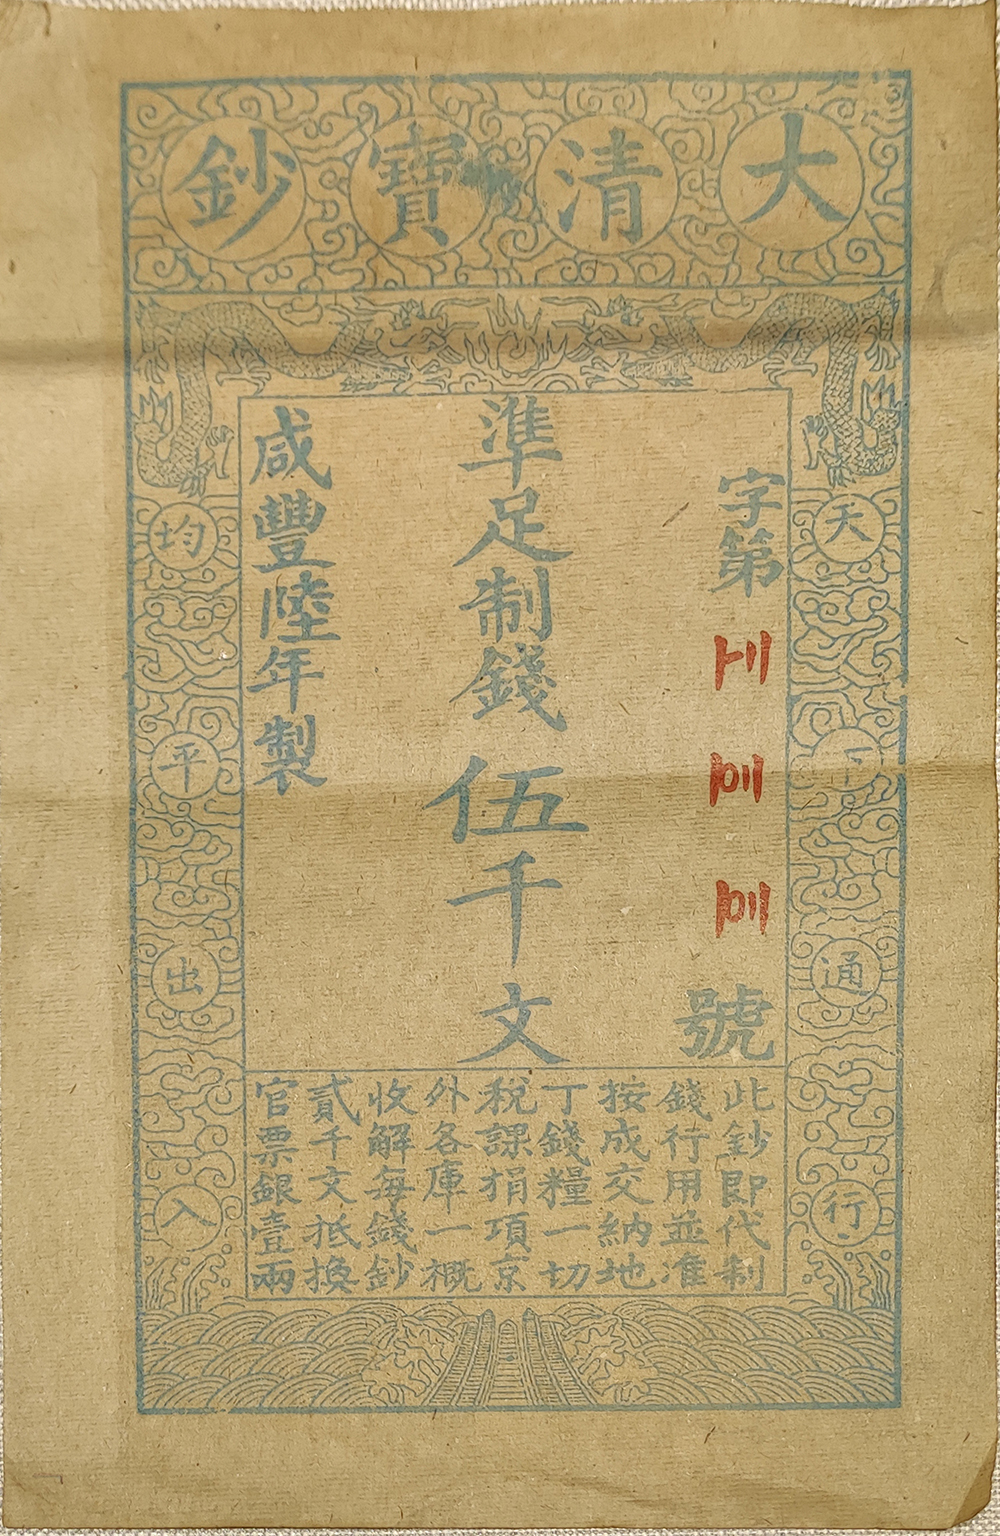 大清寶鈔
天下通行
均平出入
字第
號
準足制錢伍千文
咸豐陸年製
此鈔即代制
錢行用並准
按成交納地
丁錢糧一切
稅課捐項京
外各庫一概
收解每錢鈔
貳千文抵換
官票銀壹兩